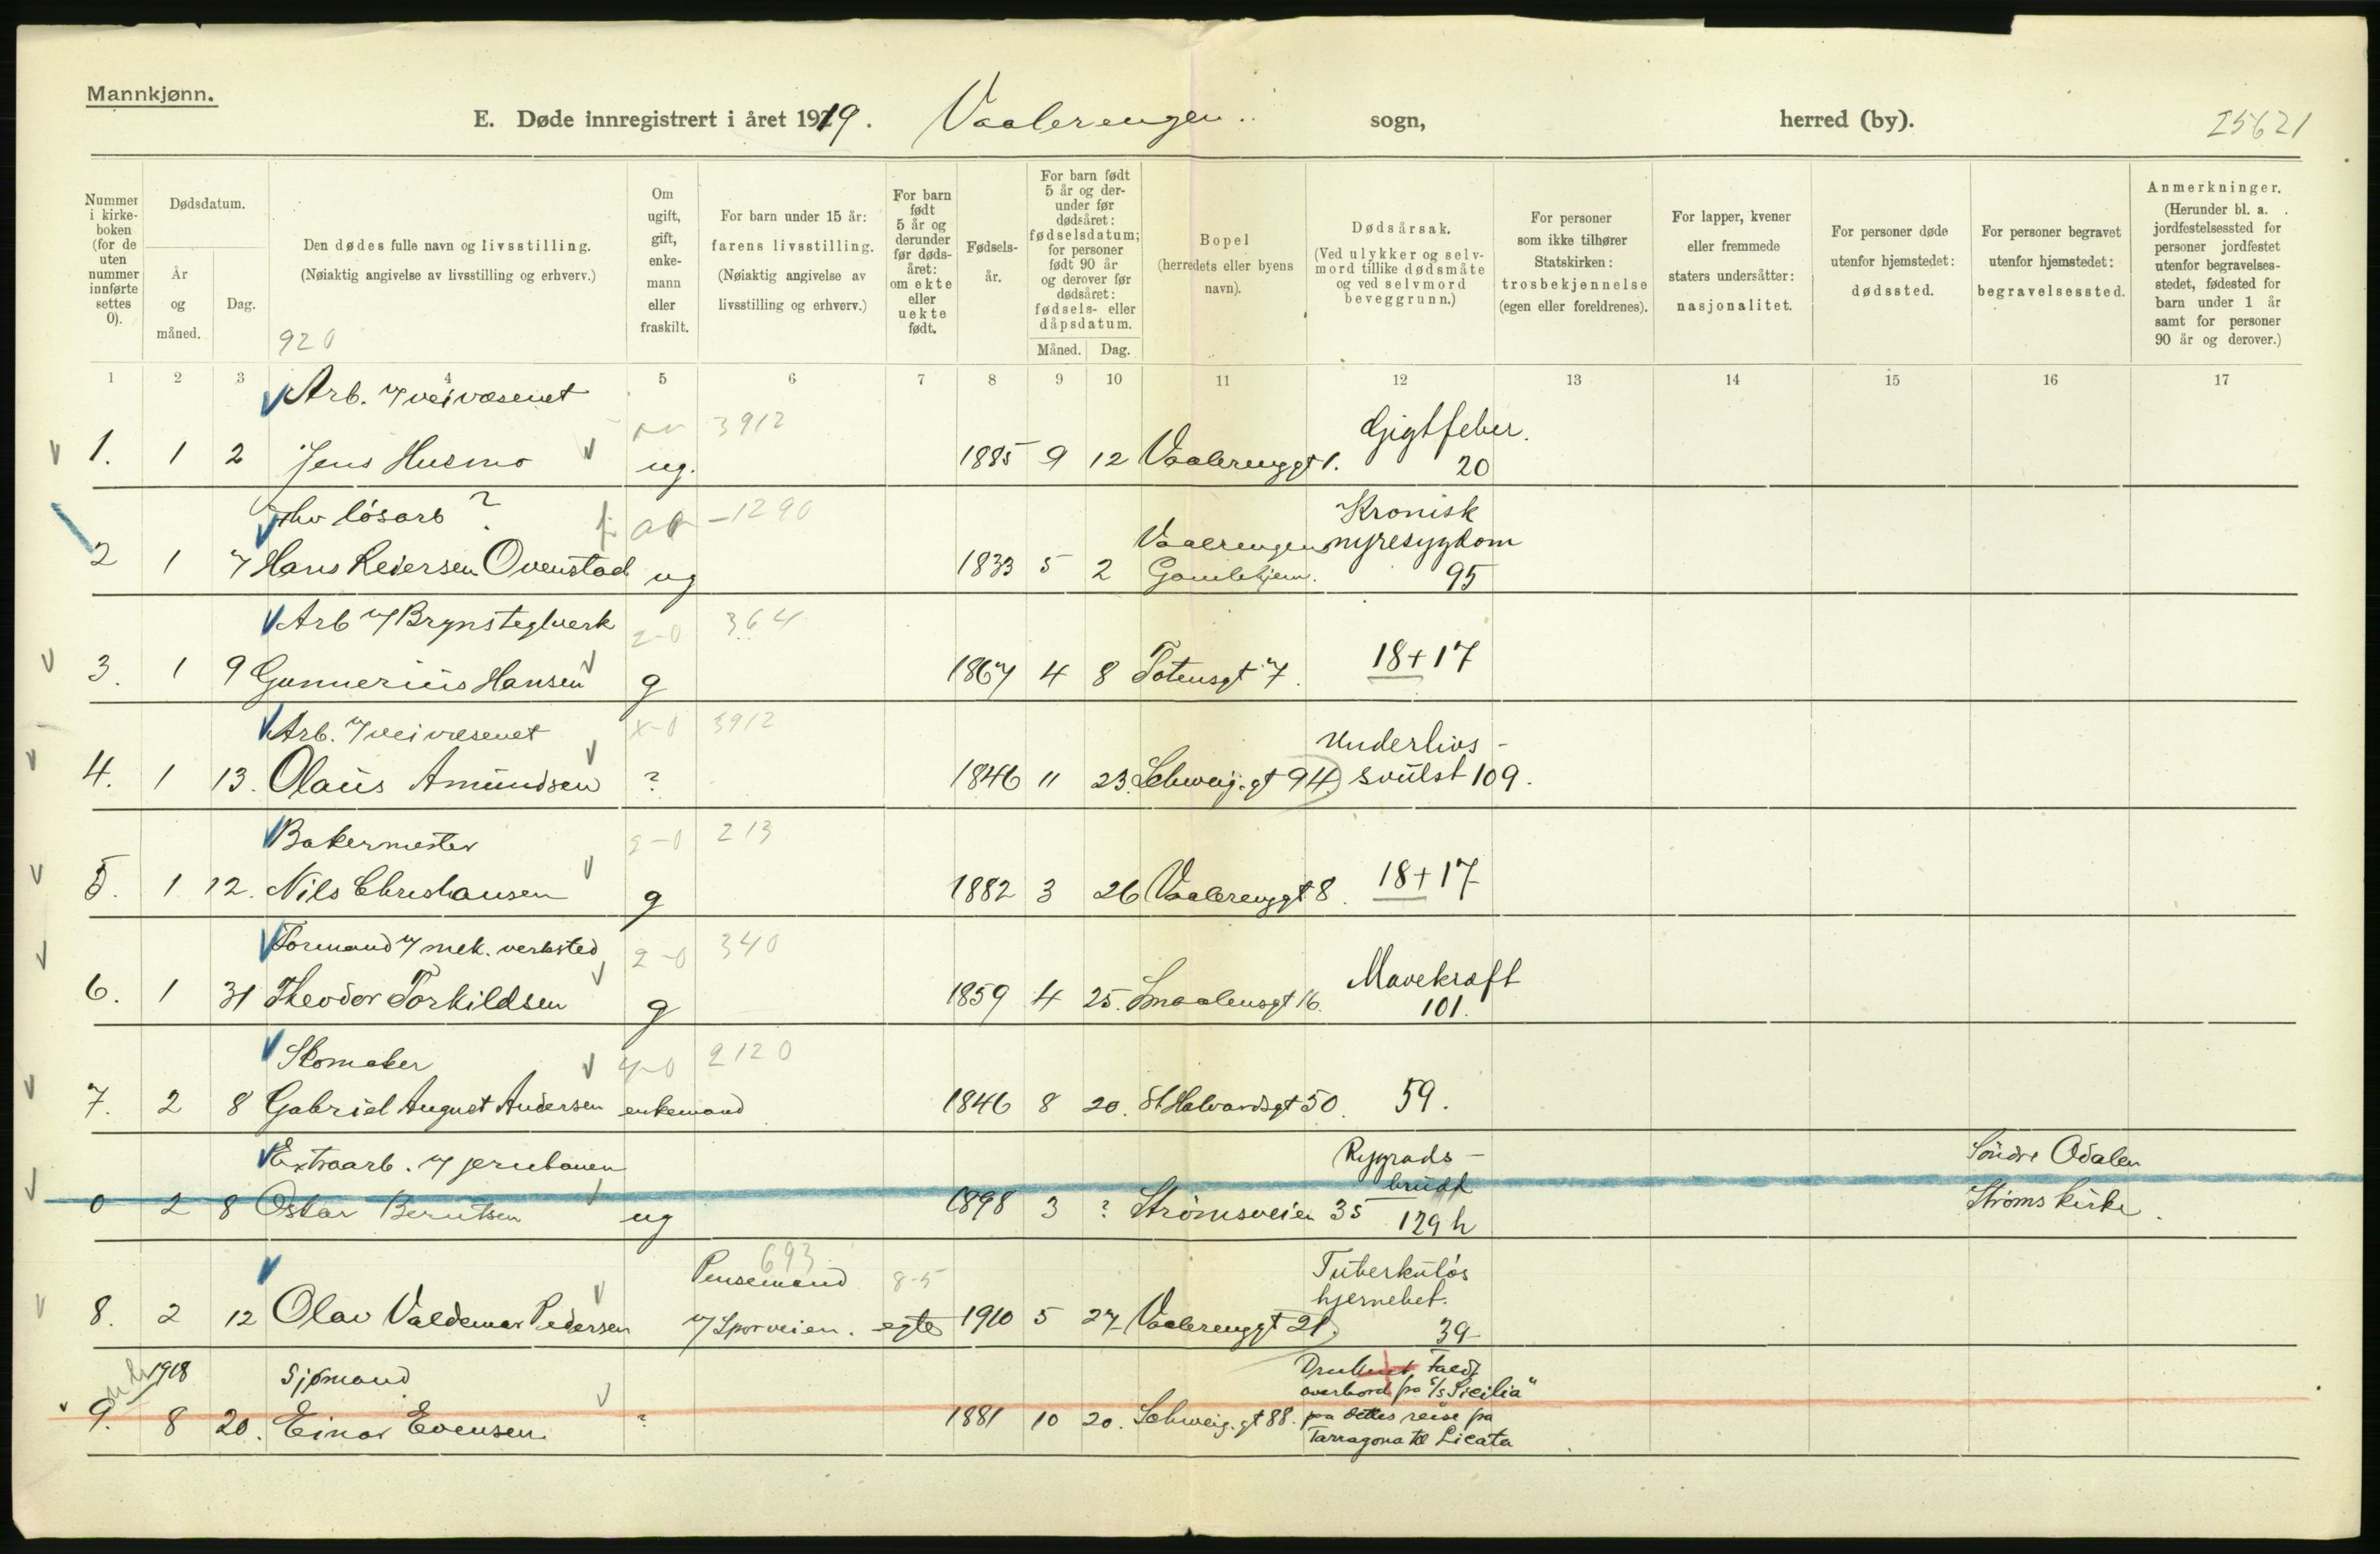 Mannkjønn.
E. Døde innregistrert i året 1919. Vaalerengen sogn, herred (by). 25621
Nummer i kirkeboken (for de uten nummer innførte settes 0).
Dødsdatum.
År og måned.
Dag.
Den dødes fulle navn og livsstilling.
(Nøiaktig angivelse av livsstilling og erhverv.)
920
Om ugift, gift, enkemann eller fraskilt.
For barn under 15 år: farens livsstilling.
(Nøiaktig angivelse av livsstilling og erhverv.)
For barn født 5 år og derunder før dødsåret: om ekte eller uekte født.
Fødselsår.
For barn født 5 år og derunder før dødsåret: fødselsdatum; for personer født 90 år og derover før dødsåret: fødsels- eller dåpsdatum.
Måned. Dag.
Bopel
(herredets eller byens navn).
Dødsårsak.
(Ved ulykker og selvmord tillike dødsmåte og ved selvmord beveggrunn.)
For personer som ikke tilhører Statskirken: trosbekjennelse (egen eller foreldrenes).
For lapper, kvener eller fremmede staters undersåtter: nasjonalitet.
For personer døde utenfor hjemstedet: dødssted.
For personer begravet utenfor hjemstedet: begravelsessted.
Anmerkninger.
(Herunder bl. a. jordfestelsessted for personer jordfestet utenfor begravelsesstedet, fødested for barn under 1 år samt for personer 90 år og derover.)
1 2 3 4 5 6 7 8 9 10 11 12 13 14 15 16 17
Arb. v/veivæsenet 3912 Gigtfeber.
1. 1 2 Jens Husmo ug. 1885 9 12 Vaalerenggt 1. 20
løsarb ? 1290 Kronisk
Vaalrengens nyresygdom
2 1 7 Hans Pedersen Ovenstad ug 1833 5 2 Gamlehjem. 95
Arb v/ Brynsteglverk 2-0 364
3. 1 9 Gunnerius Hansen g 1867 4 8 Totensgt 7. 18+17
Arb. v/veivæsenet x-0 3912 Underlivs-
4. 1 13. Olaus Amundsen ? 1846 11 23. Schweig. gt 94. svulst 109.
Bakermester 2-0 213
5. 1 12. Nils Christiansen g 1882 3 26 Vaalerenggt 8. 18+17
Formand v/ mek. verksted 2-0 340 Mavekræft
6. 1 31 Theodor Torkildsen g 1859 4 25. Smaalensgt 16. 101.
Skomaker 4-0 2120
7. 2 8 Gabriel August Andersen enkemand 1846 8 20. St Halvardsgt 50. 59.
Extraarb. v/ jernbanen Rygrads- Søndre Odalen
brudd
0 2 8 Oskar Berntsen ug 1898 3 ? Strømsveien 35 129 h Strøms kirke.
693
Pensemand 8-5 Tuberkuløs
hjernebet.
8. 2 12 Olav Valdemar Pedersen v/ Sporveien. egte 1910 5 27 Vaalerenggt 21. 39
1918 Sjømand Druknet Faldt
overbord fra s/s "Sicilia"
9. 8 20. Einar Evensen ? 1881 10 20. Schweig. gt 88. paa dettes reise fra
Tarragona til Licata